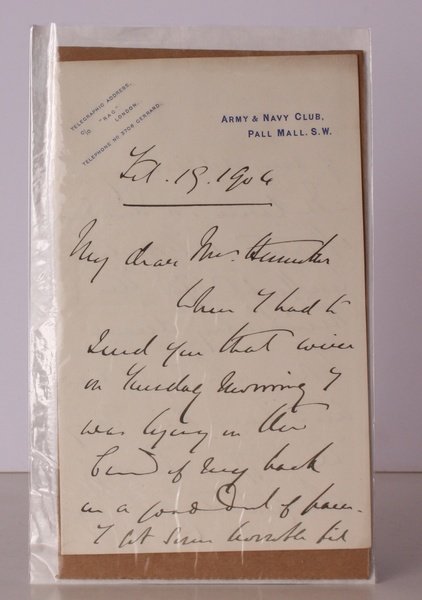 TELEGRAPHIC ADDRESS,
C/O "RAG"
LONDON.
TELEPHONE No 3708 GERRARD.
ARMY & NAVY CLUB,
PALL MALL. S.W.
Feb. 19. 1906
My dear Mrs.
When I had to
send you that wire
on Tuesday Morning I
was lying on the
of my back
in a good deal of pain.
I got some horrible